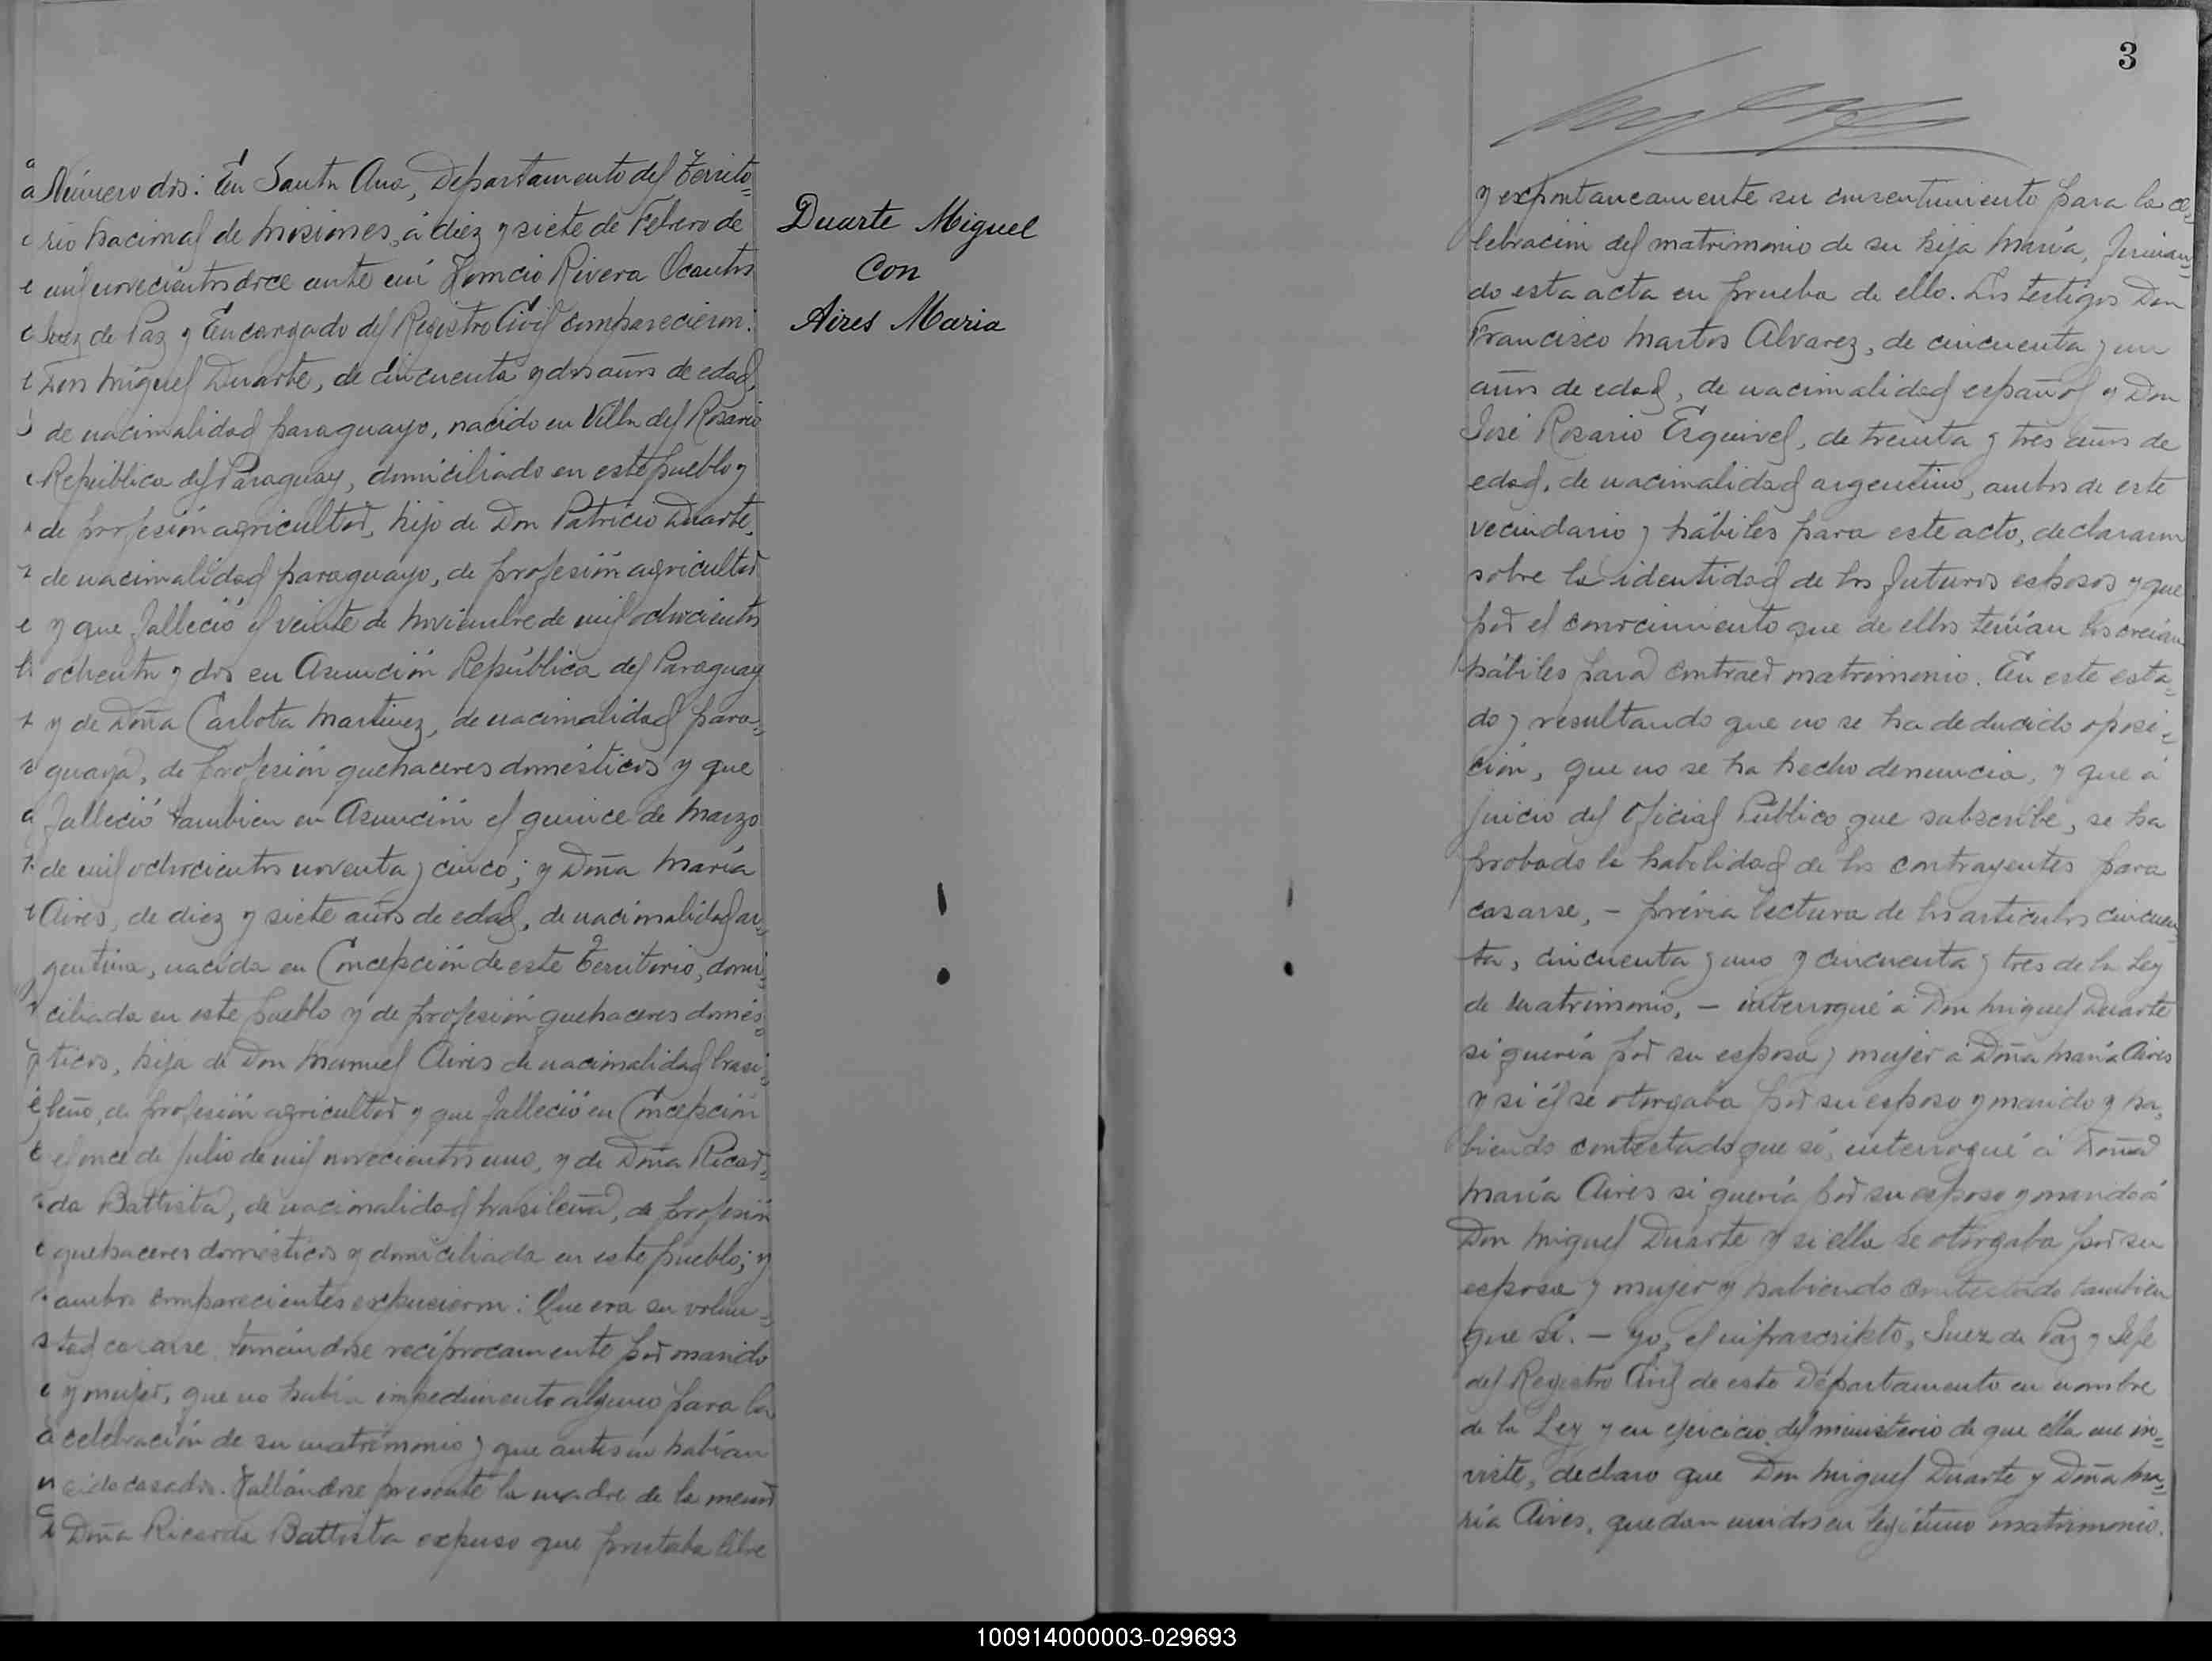 Número dos: En Santa Ana, Departamento del Territo=
rio Nacional de Misiones, á diez y siete de Febrero de
mil novecientos doce ante mi Horacio Rivera Ocantos
Juez de Paz y Encargado del Registro Civil comparecieron:
Don Miguel Duarte, de cincuenta y dos años de edad,
de nacionalidad paraguayo, nacido en Villa del Rosario
República del Paraguay, domiciliado en este pueblo y
de profesión agricultor, hijo de Don Patricio Duarte,
de nacionalidad paraguayo, de profesión agricultor
y que falleció el veinte de Noviembre de mil ochocientos
ochenta y dos en Asunción República del Paraguay
y de Doña Carlota Martinez, de nacionalidad para=
guaya, de profesión quehaceres domésticos y que
falleció tambien en Asunción el quince de Marzo
de mil ochocientos noventa y cinco; y Doña María
Aires, de diez y siete años de edad, de nacionalidad ar=
gentina, nacida en Concepción de este Territorio, domi=
ciliada en este pueblo y de profesión quehaceres domés=
ticos, hija de Don Manuel Aires de nacionalidad brasi=
leño, de profesión agricultor y que falleció en Concepción
el once de Julio de mil novecientos uno, y de Doña Ricar=
da Battista, de nacionalidad brasileña, de profesión
quehaceres domésticos y domiciliada en este pueblo; y
ambos comparecientes expusieron: Que era su volun=
tad casarse tomándose recíprocamente por marido
y mujer, que no había impedimento alguno para la
celebración de su matrimonio y que antes no habían
sido casados. Hallándose presente la madre de la menor
Doña Ricarda Battista expuso que prestaba libre
Duarte Miguel
Con
Aires Maria
3
y expontaneamente su consentimiento para la ce=
lebración del matrimonio de su hija María, firman=
do esta acta en prueba de ello. Los testigos Don
Francisco Martos Alvarez, de cincuenta y un
años de edad, de nacionalidad español y Don
José Rosario Esquivel, de treinta y tres años de
edad, de nacionalidad argentino, ambos de este
vecindario y hábiles para este acto, declararon
sobre la identidad de los futuros esposos y que
por el conocimiento que de ellos tenían los creían
hábiles para contraer matrimonio. En este esta=
do y resultando que no se ha deducido oposi=
ción, que no se ha hecho denuncia, y que á
juicio del Oficial Público que subscribe, se ha
probado la habilidad de los contrayentes para
casarse, - prévia lectura de los articulos cincuen=
ta, cincuenta y uno y cincuenta y tres de la Ley
de Matrimonio, - interrogué á Don Miguel Duarte
si quería por su esposa y mujer á Doña María Aires
y si él se otorgaba por su esposo y marido y ha=
biendo contestado que sí, interrogué á Doña
María Aires si quería por su esposo y marido á
Don Miguel Duarte y si ella se otorgaba por su
esposa y mujer y habiendo contestado tambien
que sí. - Yo, el infrascripto, Juez de Paz y Jefe
del Registro Civil de este Departamento en nombre
de la Ley y en ejercicio del ministerio de que ella me in=
viste, declaro que Don Miguel Duarte y Doña Ma=
ría Aires, quedan unidos en legítimo matrimonio.
100914000003-029693